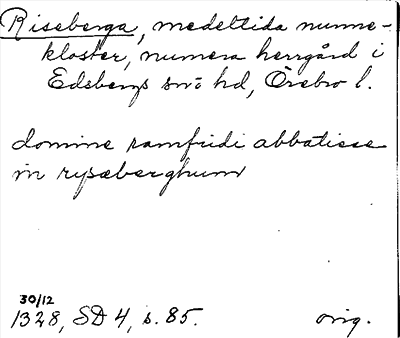 Riseberga, medeltida nunne-
kloster, numera herrgård i
Edsbergs sn o hd, Örebro l.
domine ramfridi abbatisse
in rysæberghum
30/12
1328, SD 4, s. 85. orig.